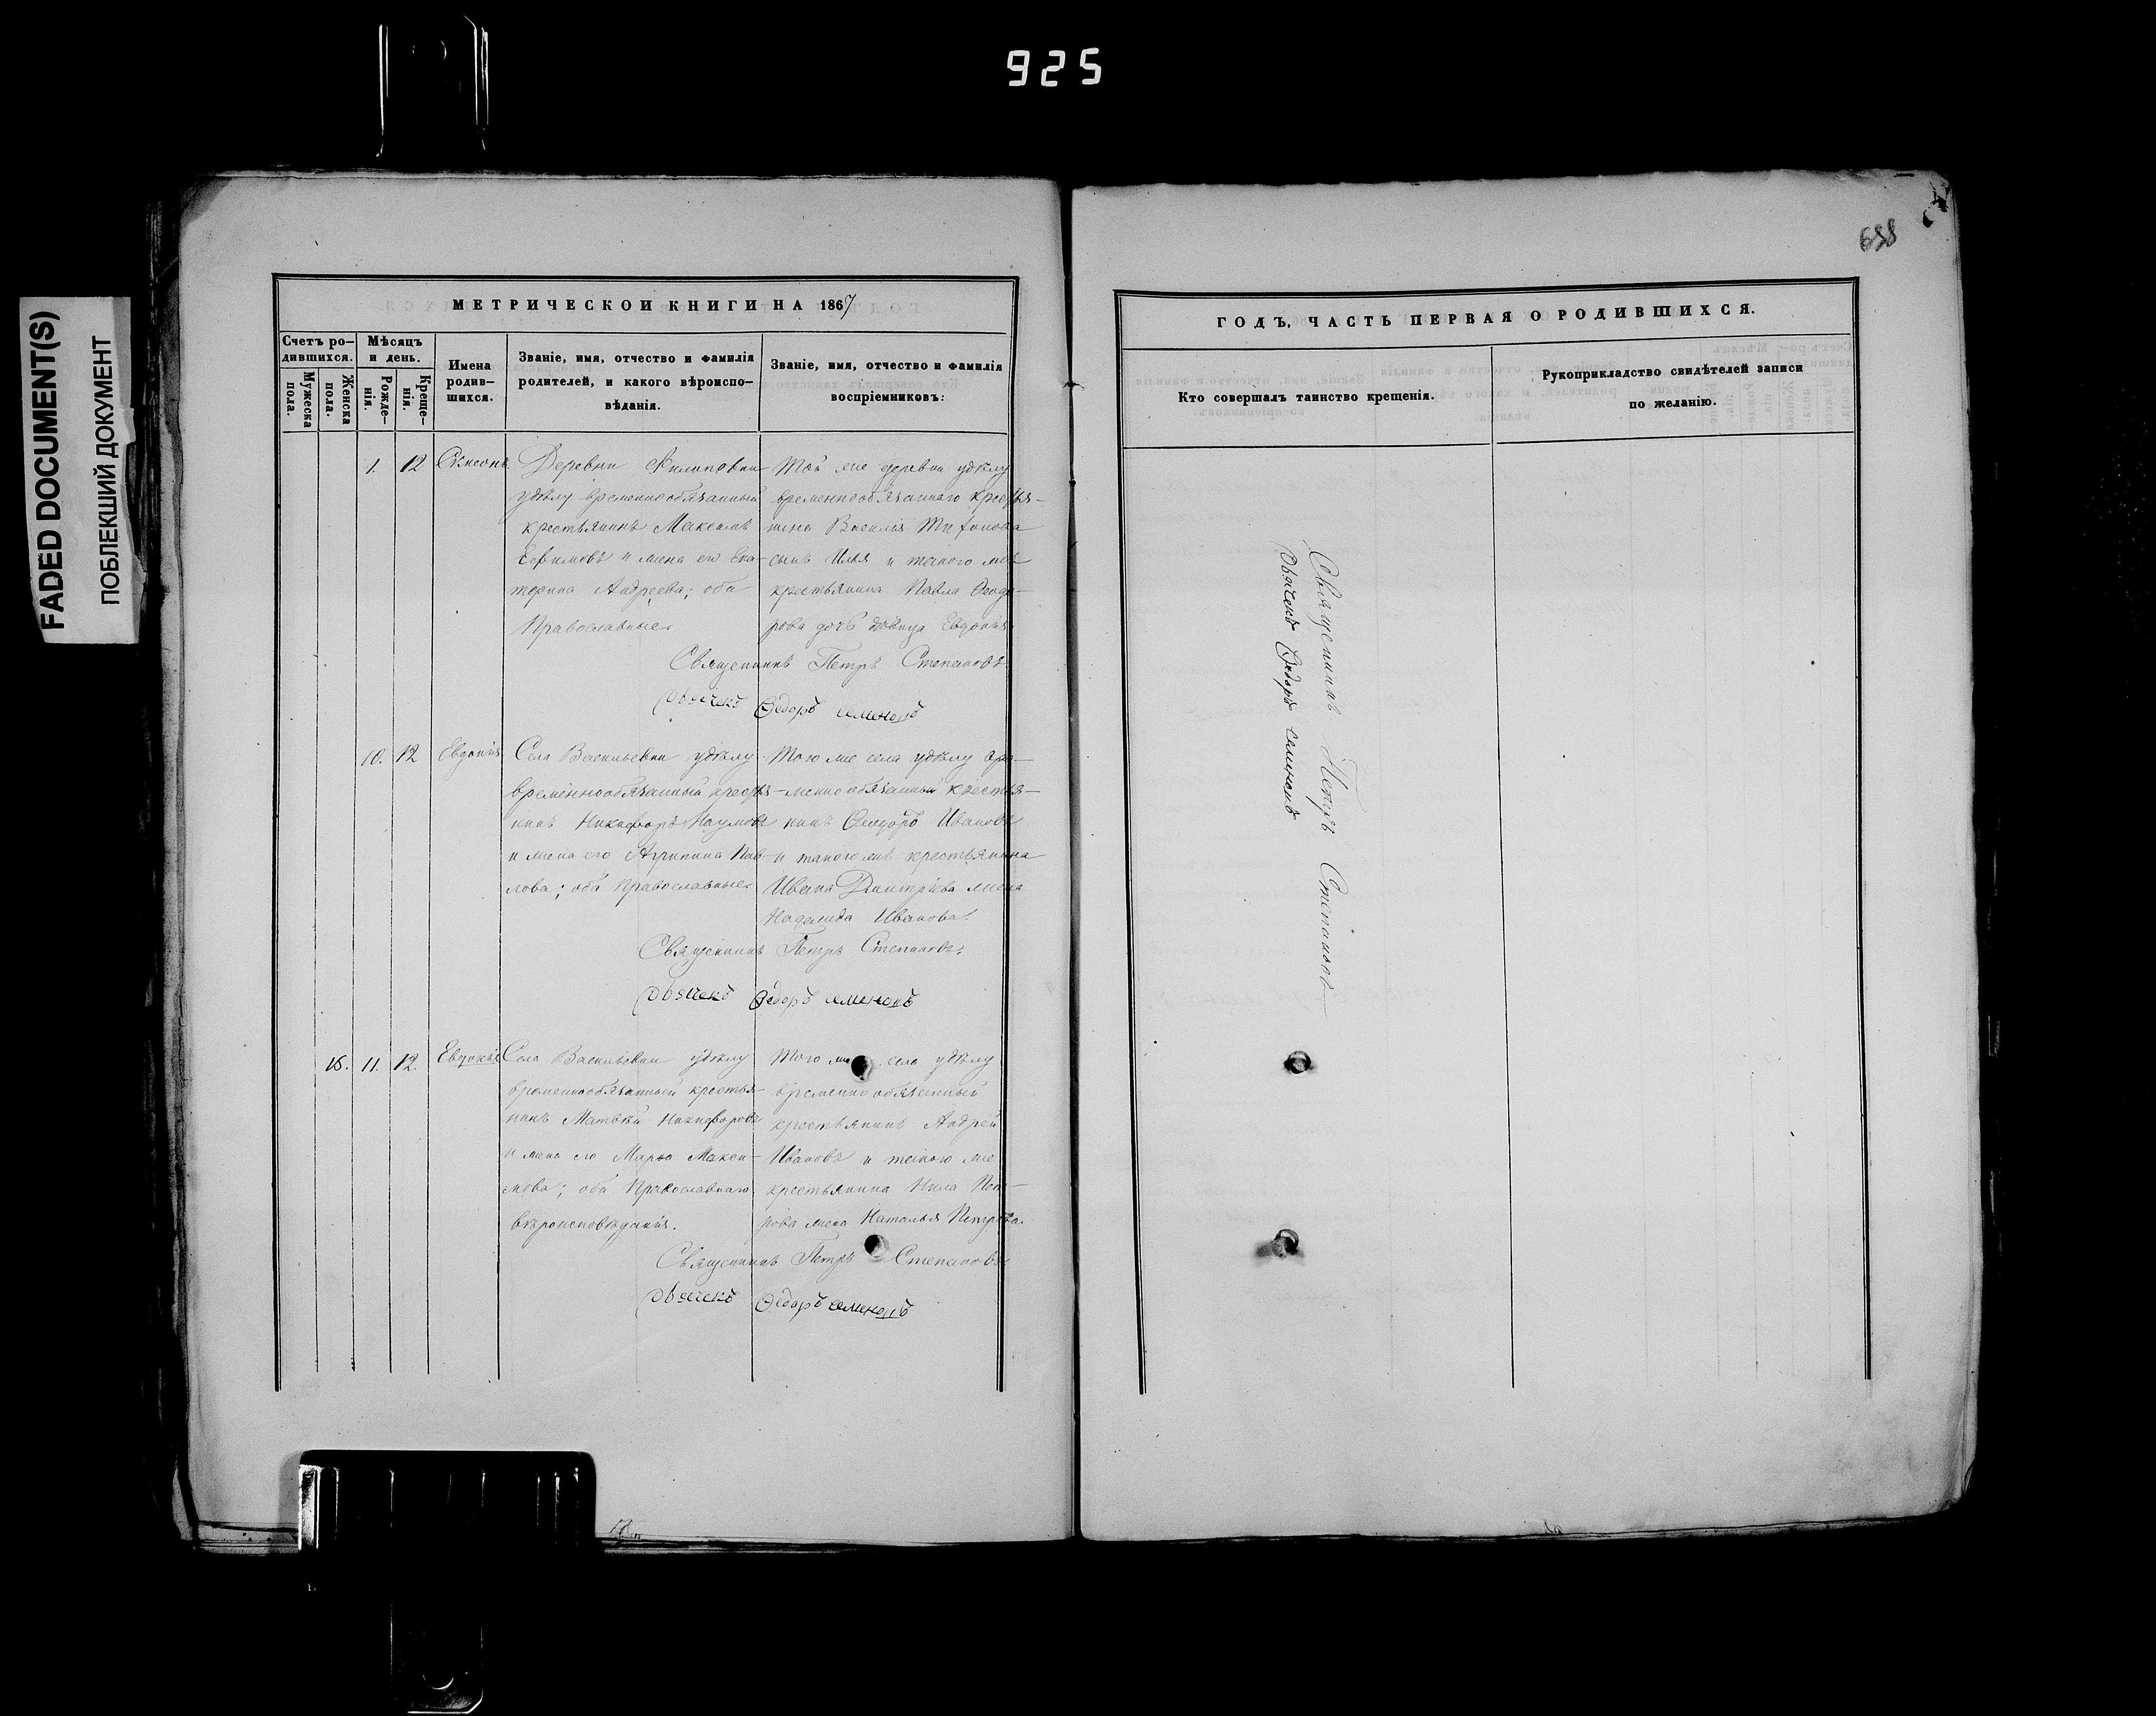 925
FADED DOCUMENT(S)
ПОБЛЕКШИЙ ДОКУМЕНТ
МЕТРИЧЕСКОЙ КНИГИ НА 1867
Счетъ ро-
дившихся.
Мѣсяцъ
и день.
Мужеска
пола.
Женска
пола.
Рожде-
нія.
Креще-
нія.
Имена
родив-
шихся.
Званіе, имя, отчество и фамилія
родителей, и какого вѣроиспо-
вѣданія.
Званіе, имя, отчество и фамилія
воспріемниковъ:
1. 12
Деревни Филиповки
удѣлу временнообязанный
крестьянинъ Максимъ
Ефимовъ и жена его Ека-
терина Андреева; оба
Православные.
Той же деревни удѣлу
временнообязаннаго крестья-
нина Василія
сынъ Илья и такого же
крестьянина Павла Ѳеодо-
рова дочь дѣвица Евдокія
Священникъ Петръ Степановъ
Дьячекъ Ѳедоръ Семеновъ
10. 12
Евдокія
Села Васильевки удѣлу
временнообязанный крестья-
нинъ Никифоръ Наумовъ
и жена его Агрипина Пав-
лова; оба Православные.
Тогоже села удѣлу вре-
меннообязанный крестья-
нинъ Ѳеодоръ Ивановъ
и такого же крестьянина
Ивана Дмитріева жена
Надежда Иванова.
Священникъ Петръ Степановъ.
Дьячекъ Ѳедоръ Семеновъ
11. 12.
Евдокія
Села Васильевки удѣлу
временнообязанный крестья-
нинъ Матвѣй Никифоровъ
и жена его Марья Макси-
мова; оба Православнаго
вѣроисповѣданія.
Того же села удѣлу
временнообязанный
крестьянинъ Андрей
Ивановъ и такого же
крестьянина Нила Пет-
рова жена Наталья Петрова.
Священникъ Петръ Степановъ
Дьячекъ Ѳедоръ Семеновъ
ГОДЪ, ЧАСТЬ ПЕРВАЯ О РОДИВШИХСЯ.
Кто совершалъ таинство крещенія.
Рукоприкладство свидѣтелей записи
по желанію.
Священникъ Петръ Степановъ
Дьячекъ Ѳедоръ Семеновъ